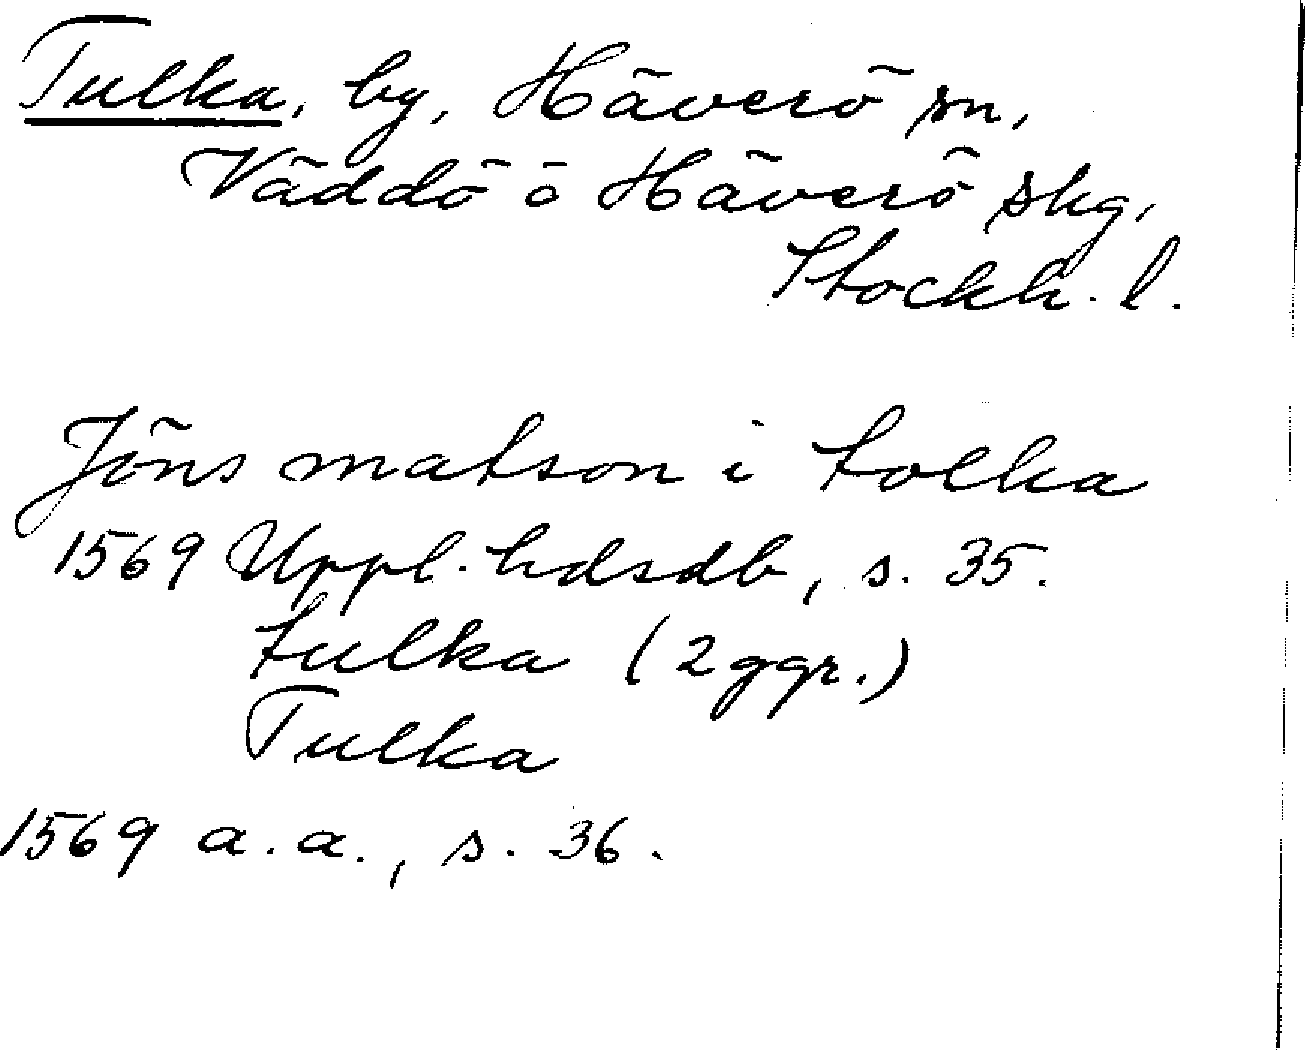 Tulka, by, Häverö sn,
Väddö ö Häverö skg,
Stockh. l.
Jöns matson i tolka
1569 Uppl. hdsdb, s. 35.
tulka (2 ggr.)
Tulka
1569 a.a., s. 36.